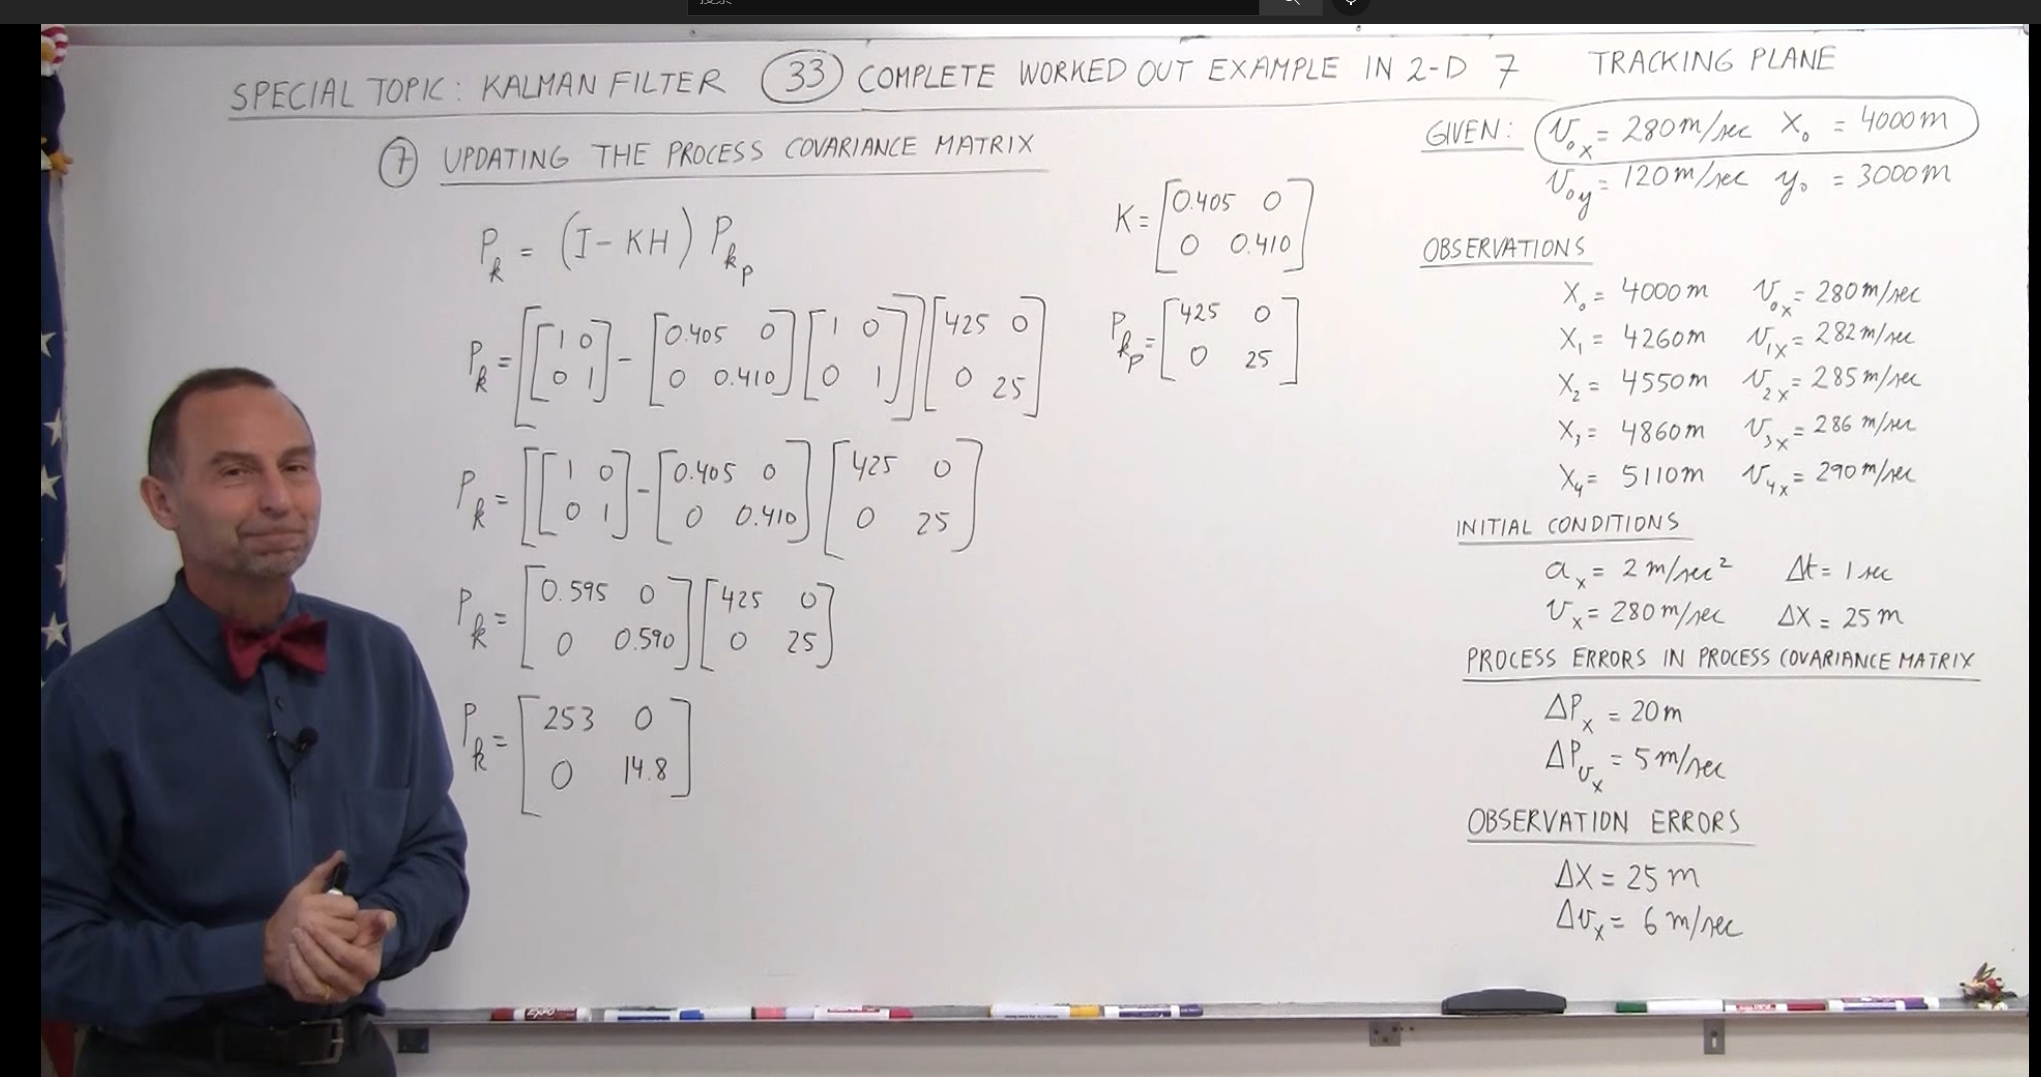 搜索
SPECIAL TOPIC: KALMAN FILTER (33) COMPLETE WORKED OUT EXAMPLE IN 2-D 7 TRACKING PLANE
⑦ UPDATING THE PROCESS COVARIANCE MATRIX
P_k = (I - KH) P_kp
P_k = [[1 0; 0 1] - [0.405 0; 0 0.410] [1 0; 0 1]] [425 0; 0 25]
P_k = [[1 0; 0 1] - [0.405 0; 0 0.410] [425 0; 0 25]
P_k = [0.595 0; 0 0.590] [425 0; 0 25]
P_k = [253 0; 0 14.8]
K = [0.405 0; 0 0.410]
P_kp = [425 0; 0 25]
GIVEN: v_0x = 280 m/sec X_0 = 4000 m
v_0y = 120 m/sec y_0 = 3000 m
OBSERVATIONS
X_0 = 4000 m v_0x = 280 m/sec
X_1 = 4260 m v_1x = 282 m/sec
X_2 = 4550 m v_2x = 285 m/sec
X_3 = 4860 m v_3x = 286 m/sec
X_4 = 5110 m v_4x = 290 m/sec
INITIAL CONDITIONS
a_x = 2 m/sec² Δt = 1 sec
v_x = 280 m/sec ΔX = 25 m
PROCESS ERRORS IN PROCESS COVARIANCE MATRIX
ΔP_x = 20 m
ΔP_vx = 5 m/sec
OBSERVATION ERRORS
ΔX = 25 m
Δv_x = 6 m/sec
EXPO